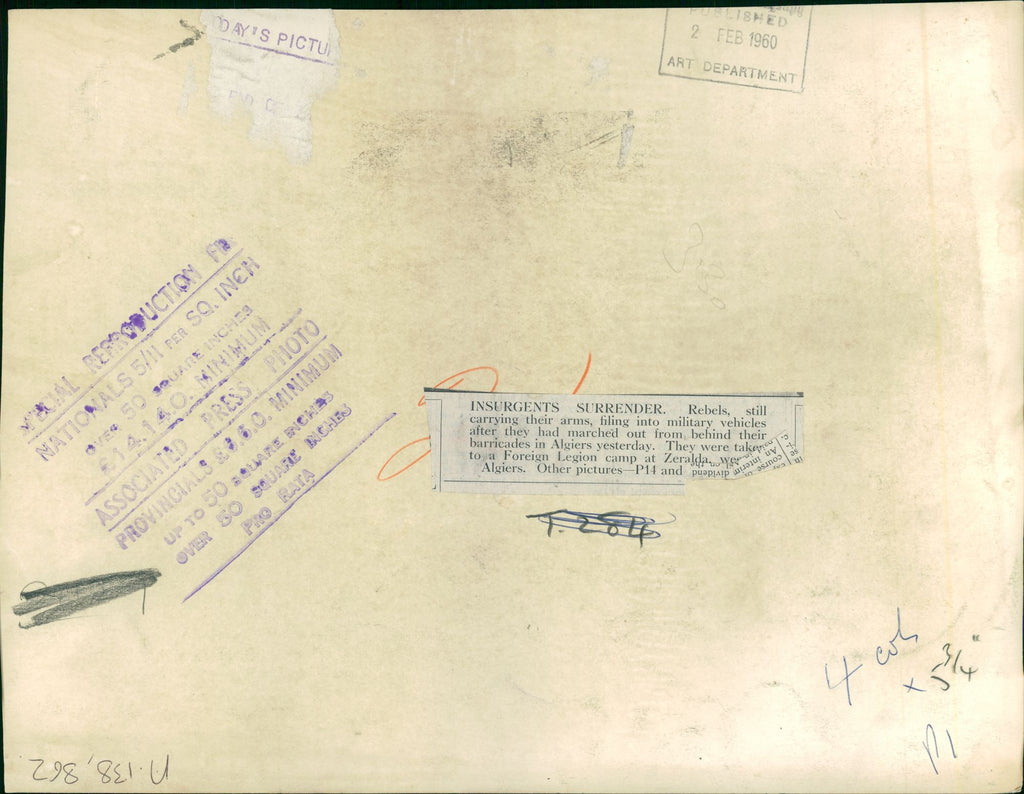 DAY'S PICTU
PUBLISHED
2 FEB 1960
ART DEPARTMENT
REPRODUCTION
NATIONALS 5/11 PER SQ. INCH
OVER 50 SQUARE INCHES
£14.14.0. MINIMUM
ASSOCIATED PRESS PHOTO
PROVINCIALS MINIMUM
UP TO 50 SQUARE INCHES
OVER 50 SQUARE INCHES
PRO RATA
INSURGENTS SURRENDER. Rebels, still
carrying their arms, filing into military vehicles
after they had marched out from behind their
barricades in Algiers yesterday. They were taken
to a Foreign Legion camp at Zeralda, we
Algiers. Other pictures—P14 and
dividend
An interim
course
4 cols
x 5 3/4"
P1
N.138,862